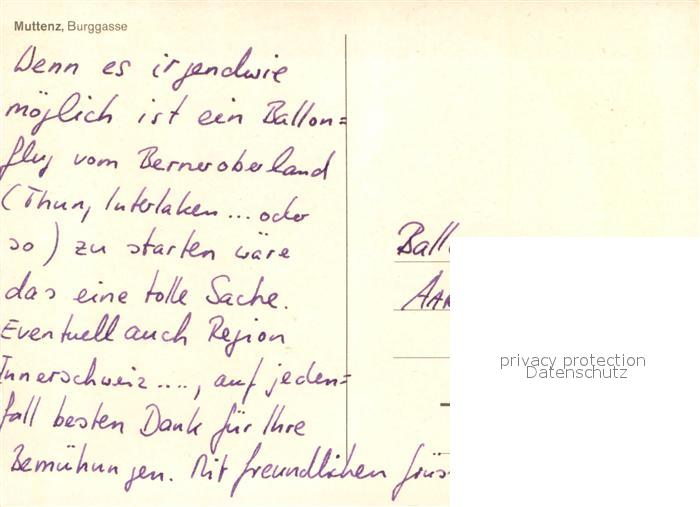 Muttenz, Burggasse
Wenn es irgendwie
möglich ist ein Ballon=
flug vom Berneroberland
(Thun, Interlaken... oder
so) zu starten wäre
das eine tolle Sache.
Eventuell auch Region
Innerschweiz...., auf jeden=
fall besten Dank für Ihre
Bemühungen. Mit freundlichen Grüs
Ball
AAR
privacy protection
Datenschutz